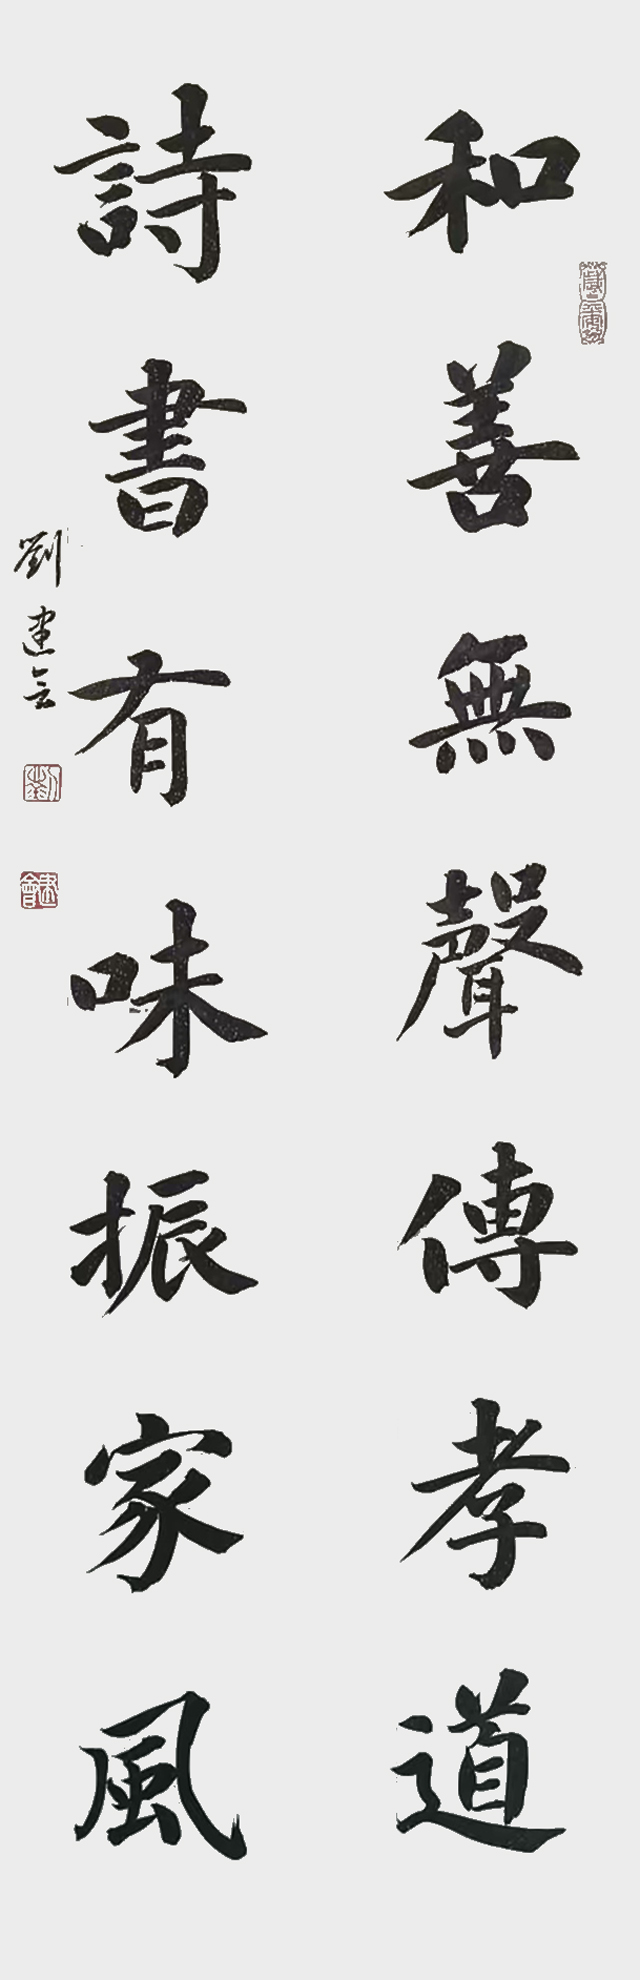 和善無聲傳孝道
詩書有味振家風
劉建會